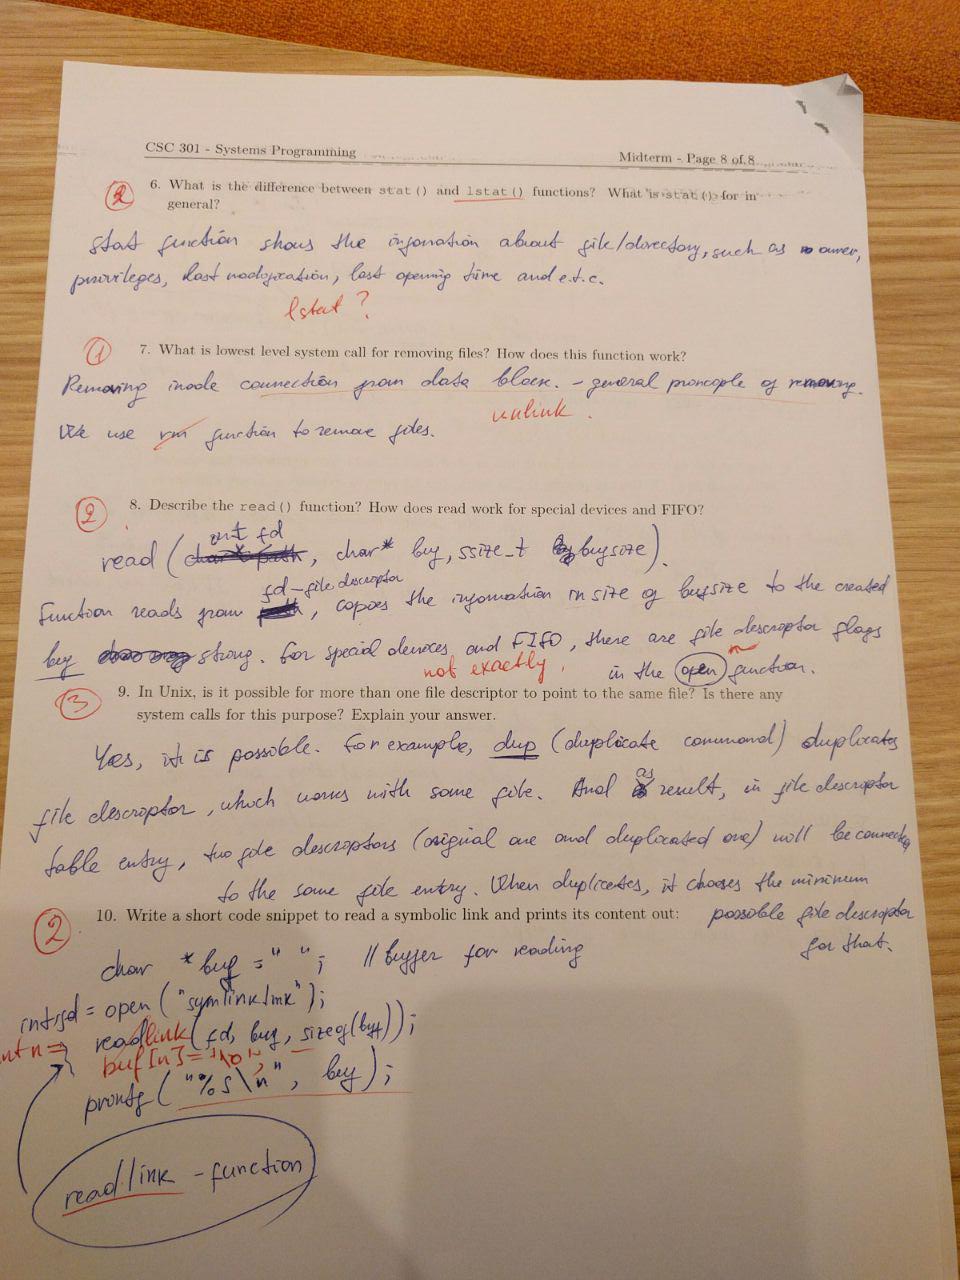 CSC 301 - Systems Programming
Midterm - Page 8 of 8
2
6. What is the difference between stat() and lstat() functions? What is stat() for in
general?
stat function shows the information about file/directory, such as owner,
privileges, last modification, last opening time and e.t.c.
lstat ?
1
7. What is lowest level system call for removing files? How does this function work?
Removing inode connection from data block. - general principle of removing.
unlink.
We use rm function to remove files.
2
8. Describe the read() function? How does read work for special devices and FIFO?
int fd
read (char* path, char* buf, ssize_t bufsize).
fd - file descriptor
Function reads from path, copies the information in size of bufsize to the created
buf string. For special devices and FIFO, there are file descriptor flags
not exactly.
in the open function.
3
9. In Unix, is it possible for more than one file descriptor to point to the same file? Is there any
system calls for this purpose? Explain your answer.
Yes, it is possible. For example, dup (duplicate command) duplicates
file descriptor, which works with same file. And as result, in file descriptor
table entry, two file descriptors (original one and duplicated one) will be connected
to the same file entry. When duplicates, it chooses the minimum
possible file descriptor
for that.
2
10. Write a short code snippet to read a symbolic link and prints its content out:
char *buf = " "; // buffer for reading
int fd = open ("symlink.lnk");
int n = readlink (fd, buf, sizeof(buf));
buf[n] = '\0';
printf ("%s\n", buf);
readlink - function